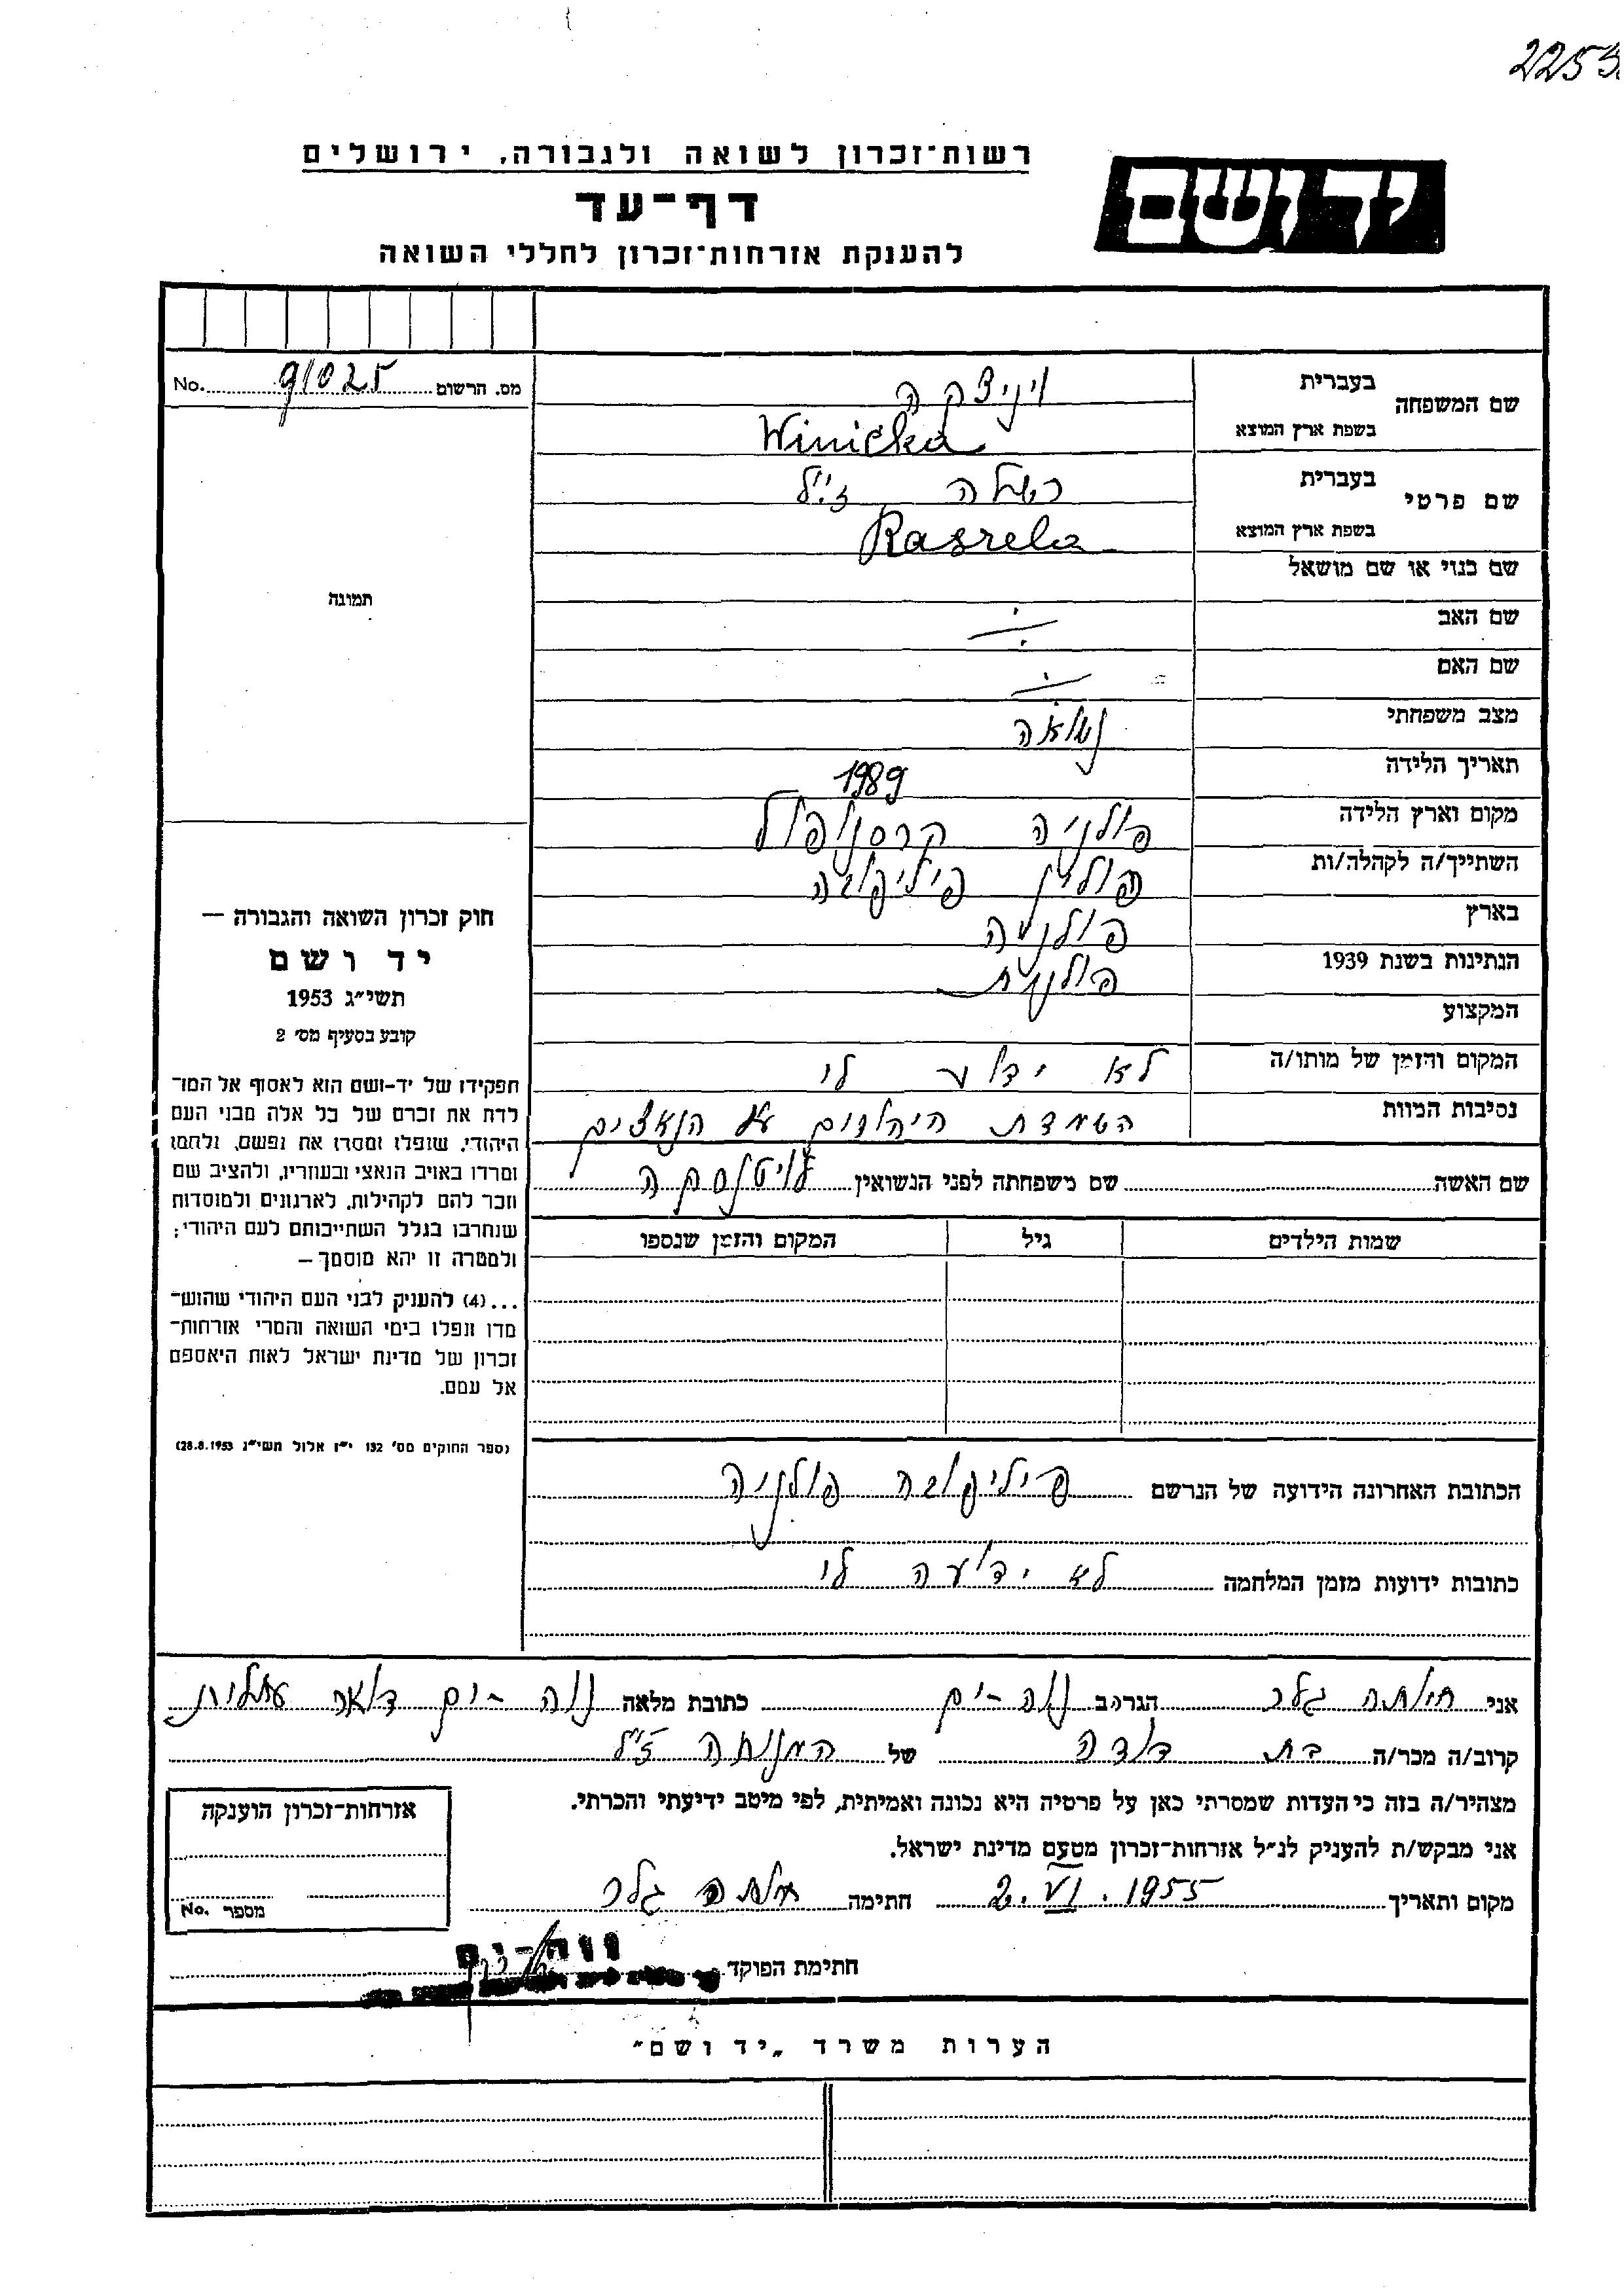 2253
רשות־זכרון לשואה ולגבורה, ירושלים
יד ושם
דף־עד
להענקת אזרחות־זכרון לחללי השואה
מס. הרשום 91025 No.
שם המשפחה
בעברית ויניצקה
בשפת ארץ המוצא Winicka
שם פרטי
בעברית רשלה ז"ל
בשפת ארץ המוצא Raszela
שם כנוי או שם מושאל
שם האב
שם האם
מצב משפחתי נשואה
תאריך הלידה 1989
מקום וארץ הלידה פולניה קרסנופול
השתייך/ה לקהלה/ות פולין פיליפובה
בארץ פולניה
הנתינות בשנת 1939 פולנית
המקצוע
המקום והזמן של מותו/ה לא ידוע לי
נסיבות המוות השמדת היהודים ע"י הנאצים
שם האשה שם משפחתה לפני הנשואין
שמות הילדים גיל המקום והזמן שנספו
הכתובת האחרונה הידועה של הנרשם פיליפובה פולניה
כתובות ידועות מזמן המלחמה לא ידועה לי
תמונה
חוק זכרון השואה והגבורה —
יד ושם
תשי״ג 1953
קובע בסעיף מס׳ 2
תפקידו של יד-ושם הוא לאסוף אל המו־
לדת את זכרם של כל אלה מבני העם
היהודי, שנפלו ומסרו את נפשם, נלחמו
ומרדו באויב הנאצי ובעוזריו, ולהציב שם
וזכר להם לקהילות, לארגונים ולמוסדות
שנחרבו בגלל השתייכותם לעם היהודי;
ולמטרה זו יהא מוסמך —
...(4) להעניק לבני העם היהודי שהוש־
מדו ונפלו בימי השואה והמרי אזרחות־
זכרון של מדינת ישראל לאות היאספם
אל עמם.
(ספר החוקים מס׳ 132 י״ז אלול תשי״ג 28.8.1953)
אני גלר הגר/ה ב נוה-ים כתובת מלאה נוה-ים דואר עתלית
קרוב/ה מכר/ה בת דודה של המנוחה ז"ל
מצהיר/ה בזה כי העדות שמסרתי כאן על פרטיה היא נכונה ואמיתית, לפי מיטב ידיעתי והכרתי.
אני מבקש/ת להעניק לנ״ל אזרחות־זכרון מטעם מדינת ישראל.
מקום ותאריך 2.VI.1955 חתימה גלר
אזרחות־זכרון הוענקה
מספר No.
חתימת הפוקד
נוה-ים
הערות משרד „יד ושם״